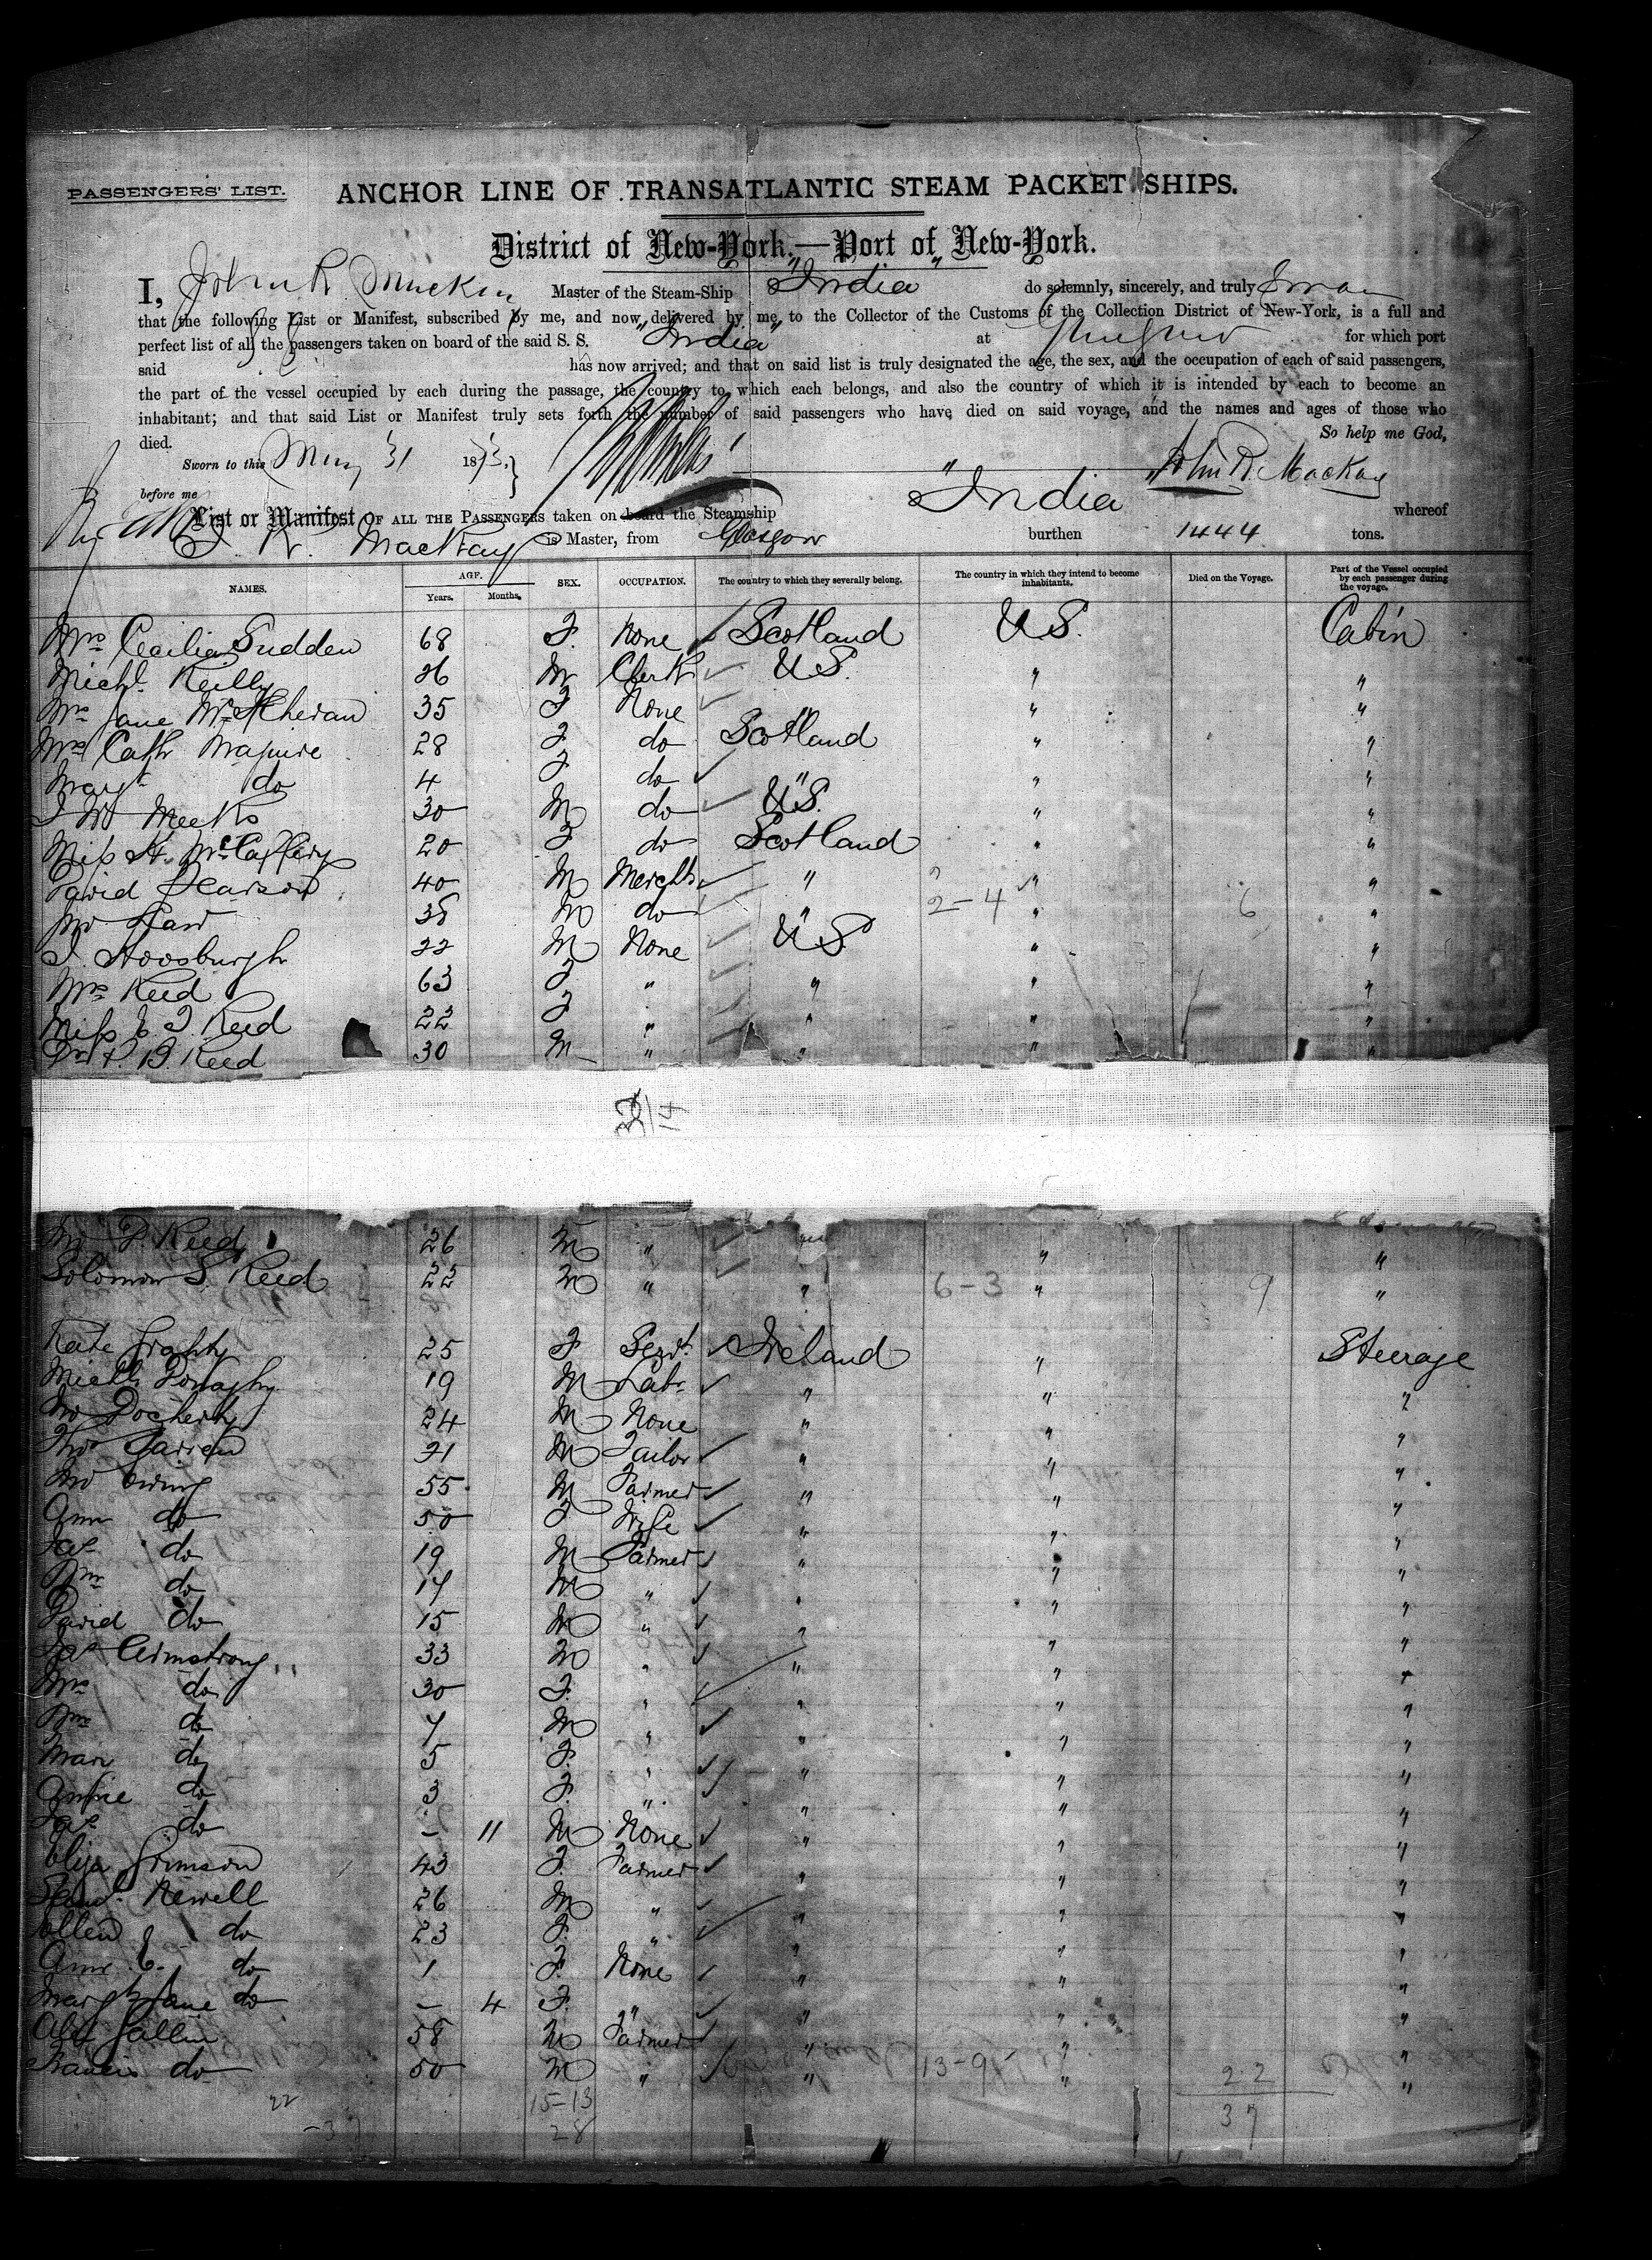 PASSENGERS' LIST.
ANCHOR LINE OF TRANSATLANTIC STEAM PACKET SHIPS.
District of New-York.—Port of New-York.
I, John R Mackay Master of the Steam-Ship "India" do solemnly, sincerely, and truly Swear
that the following List or Manifest, subscribed by me, and now delivered by me, to the Collector of the Customs of the Collection District of New-York, is a full and
perfect list of all the passengers taken on board of the said S. S. "India" at Glasgow for which port
said has now arrived; and that on said list is truly designated the age, the sex, and the occupation of each of said passengers,
the part of the vessel occupied by each during the passage, the country to which each belongs, and also the country of which it is intended by each to become an
inhabitant; and that said List or Manifest truly sets forth the number of said passengers who have died on said voyage, and the names and ages of those who
died. So help me God,
Sworn to this May 31 1873. John R. Mackay
before me
List or Manifest OF ALL THE PASSENGERS taken on board the Steamship "India" whereof
J. R. MacKay is Master, from Glasgow burthen 1444 tons.
NAMES. AGE. Years. Months. SEX. OCCUPATION. The country to which they severally belong. The country in which they intend to become inhabitants. Died on the Voyage. Part of the Vessel occupied by each passenger during the voyage.
Mrs Cecilia Sudden 68 F. None Scotland U S. Cabin
Michl. Reilly 26 M Clerk U S. " "
Mrs Jane 35 F None " " "
Mrs Cath Maguire 28 F do Scotland " "
Margt do 4 F do " " "
J W Meeks 30 M do U S. " "
Miss H. McCaffery 20 F do Scotland " "
David Pearson 40 M Mercht " " "
Jno 38 M do " 2-4 " 6 "
J. 22 M None U S. " "
Mrs Reed 63 F " " " "
Miss E. J. Reed 22 F " " " "
P. B. Reed 30 M " " " "
Jno P. Reed 26 M " " " "
Solomon S. Reed 22 M " " 6-3 " 9 "
Kate 25 F Servt. Ireland " Steerage
Michl 19 M Labr " " "
Jno Docherty 24 M None " " "
Thos 21 M Tailor " " "
Jno Ewing 55 M Farmer " " "
Ann do 50 F Wife " " "
Jas do 19 M Farmer " " "
Wm do 17 M " " " "
David do 15 M " " " "
Jas Armstrong 33 M " " " "
Mrs do 30 F. " " " "
Wm do 7 M " " " "
Mary do 5 F. " " " "
Annie do 3 F. " " " "
Jas do - 11 M None " " "
Eliza Grimson 43 F. Farmer " " "
Newell 26 M " " " "
Ellen do 23 F. " " " "
Ann E. do 1 F. None " " "
Margt Jane do - 4 F. " " " "
Alex Gallen 58 M Farmer " " "
Francis do 50 M " " 13-9 " 22 "
22 15-13 37
28